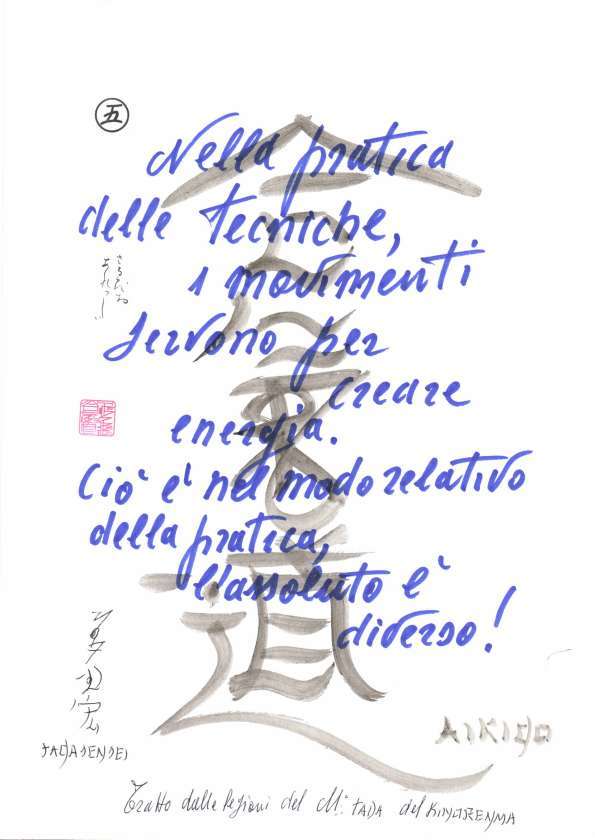 五
Nella pratica
delle tecniche,
i movimenti
servono per
creare
energia.
Ciò è nel modo relativo
della pratica,
l'assoluto è
diverso!
合氣道
多田宏
TADA SENSEI
AIKIDO
Tratto dalle lezioni del M° TADA del KINORENMA